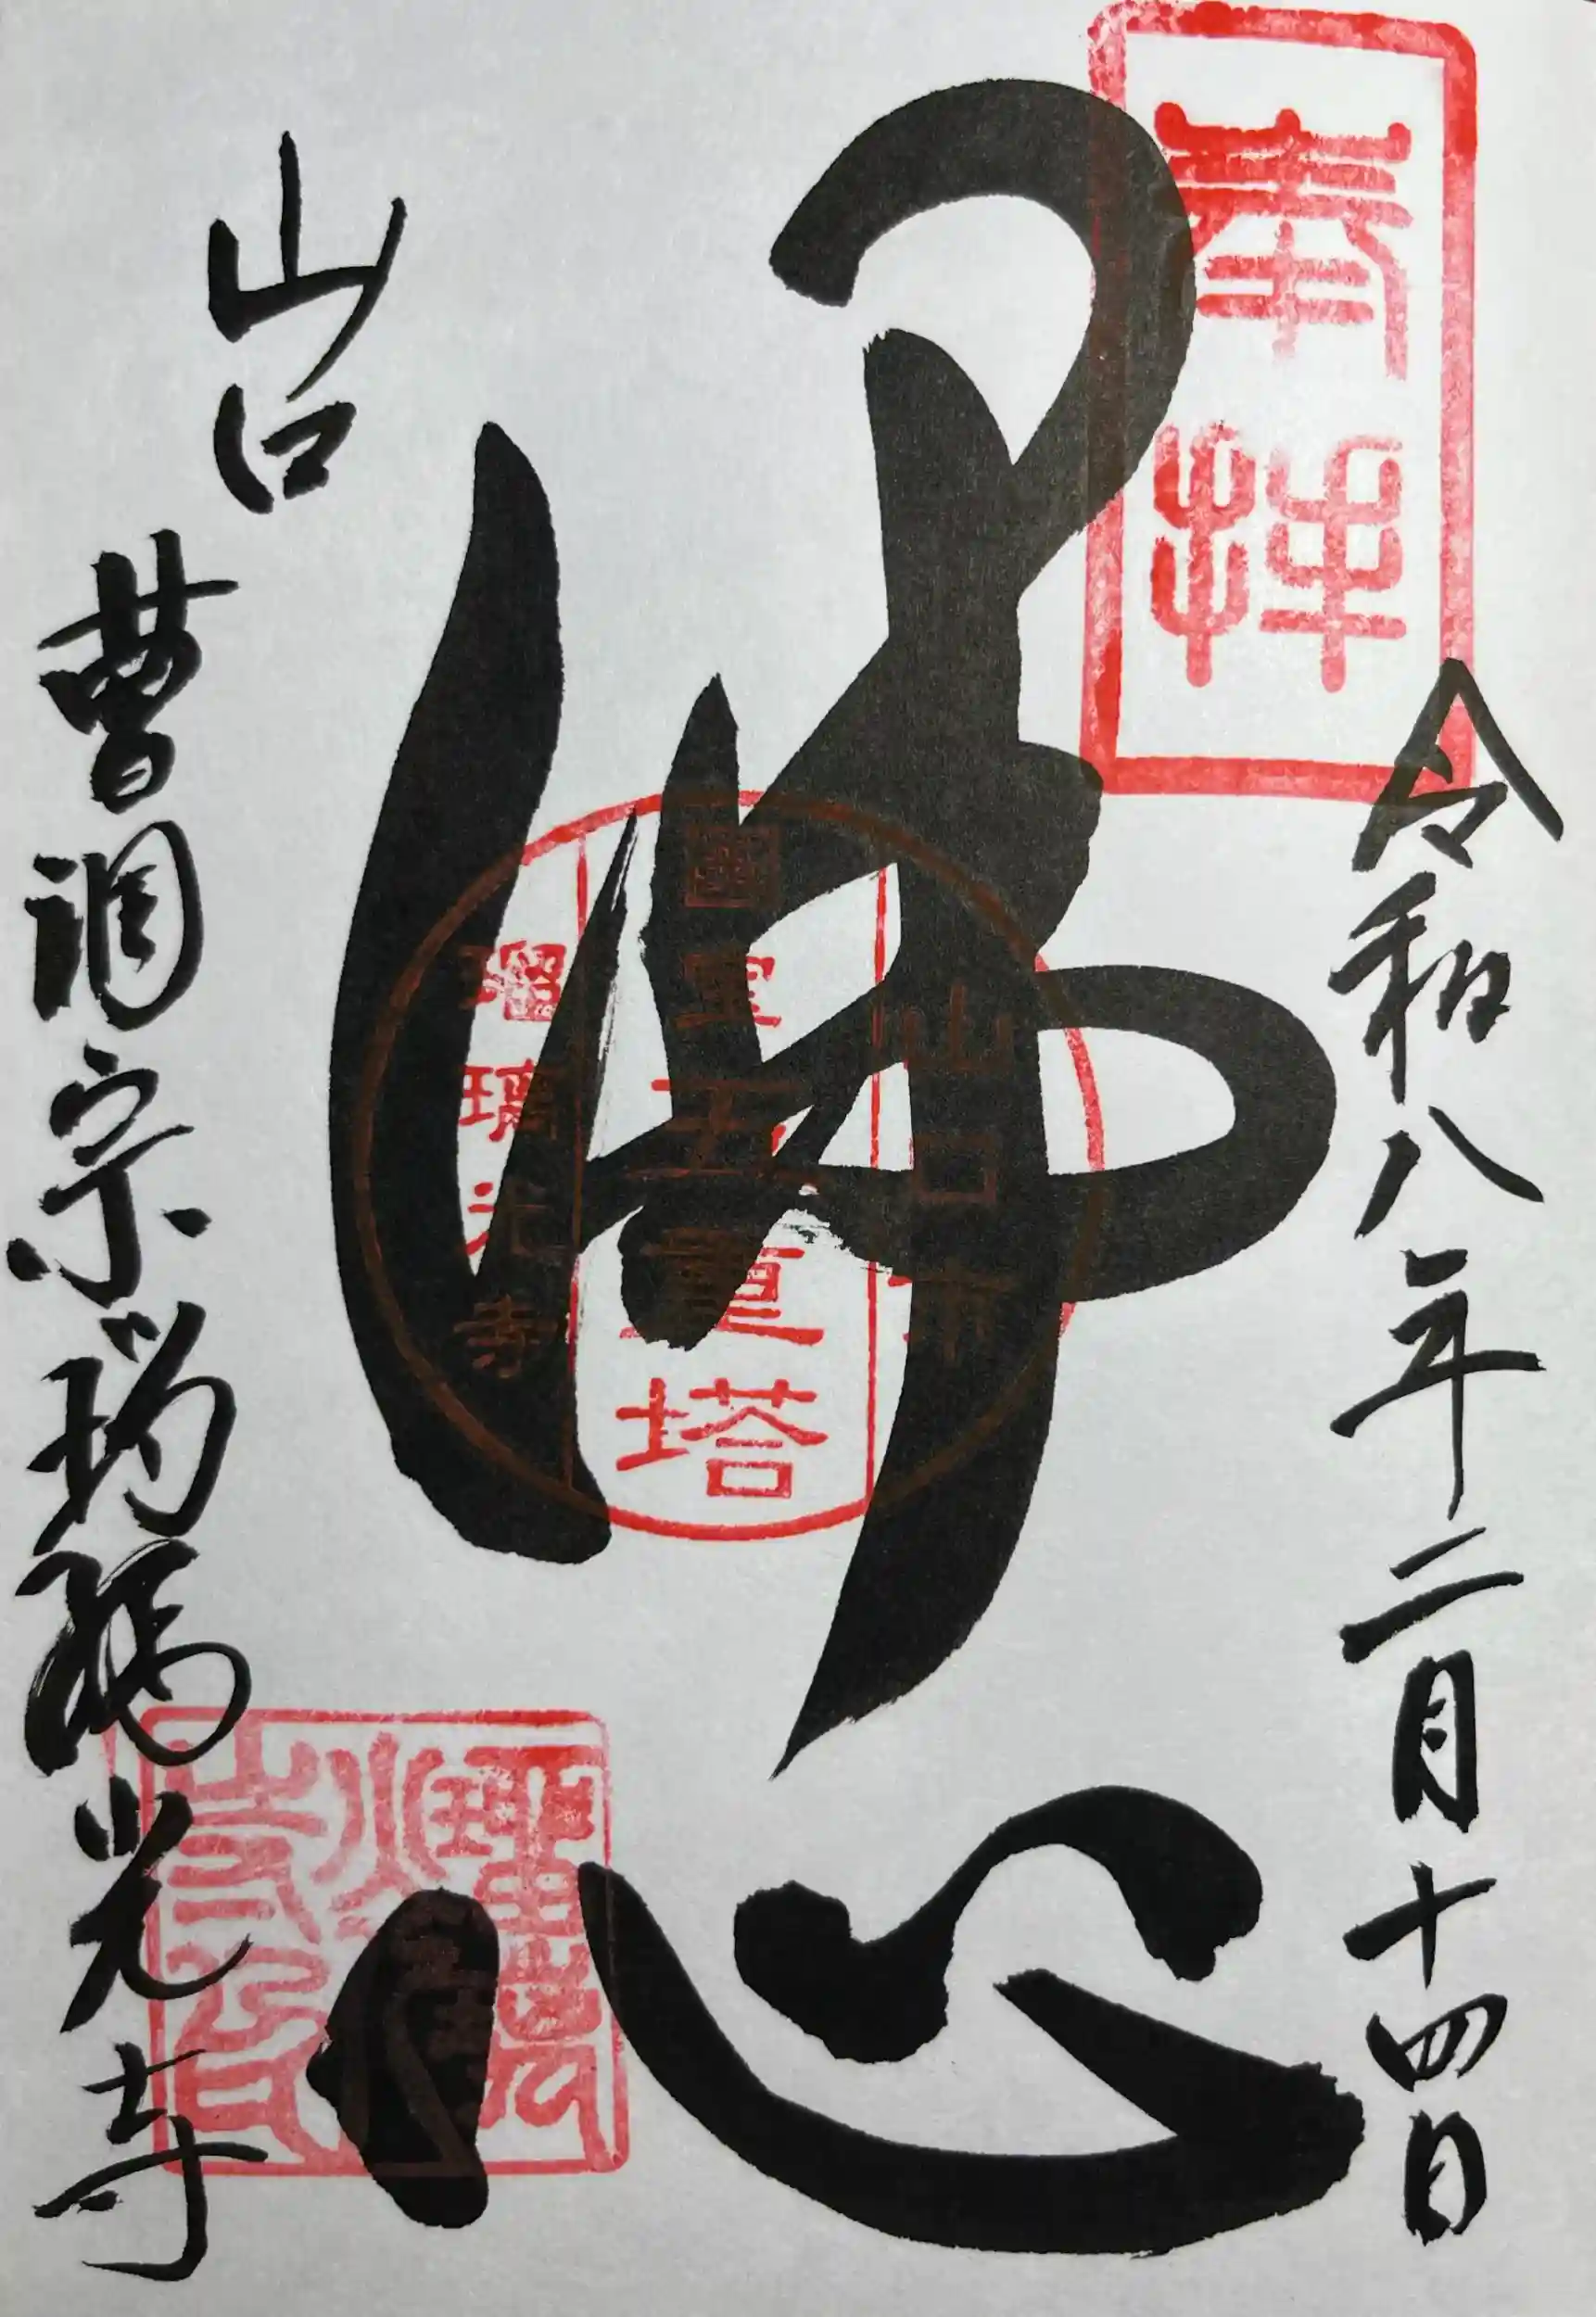 奉拝
令和八年二月十四日
佛心
山口市
國宝五重塔
瑠璃光寺
山口
曹洞宗瑠璃光寺